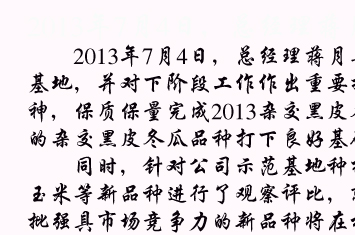 2013年7月4日，总经理蒋月
基地，并对下阶段工作作出重要
神，保质保量完成2013杂交黑皮
的杂交黑皮冬瓜品种打下良好基
同时，针对公司示范基地种
玉米等新品种进行了观察评比，
批强具市场竞争力的新品种将在